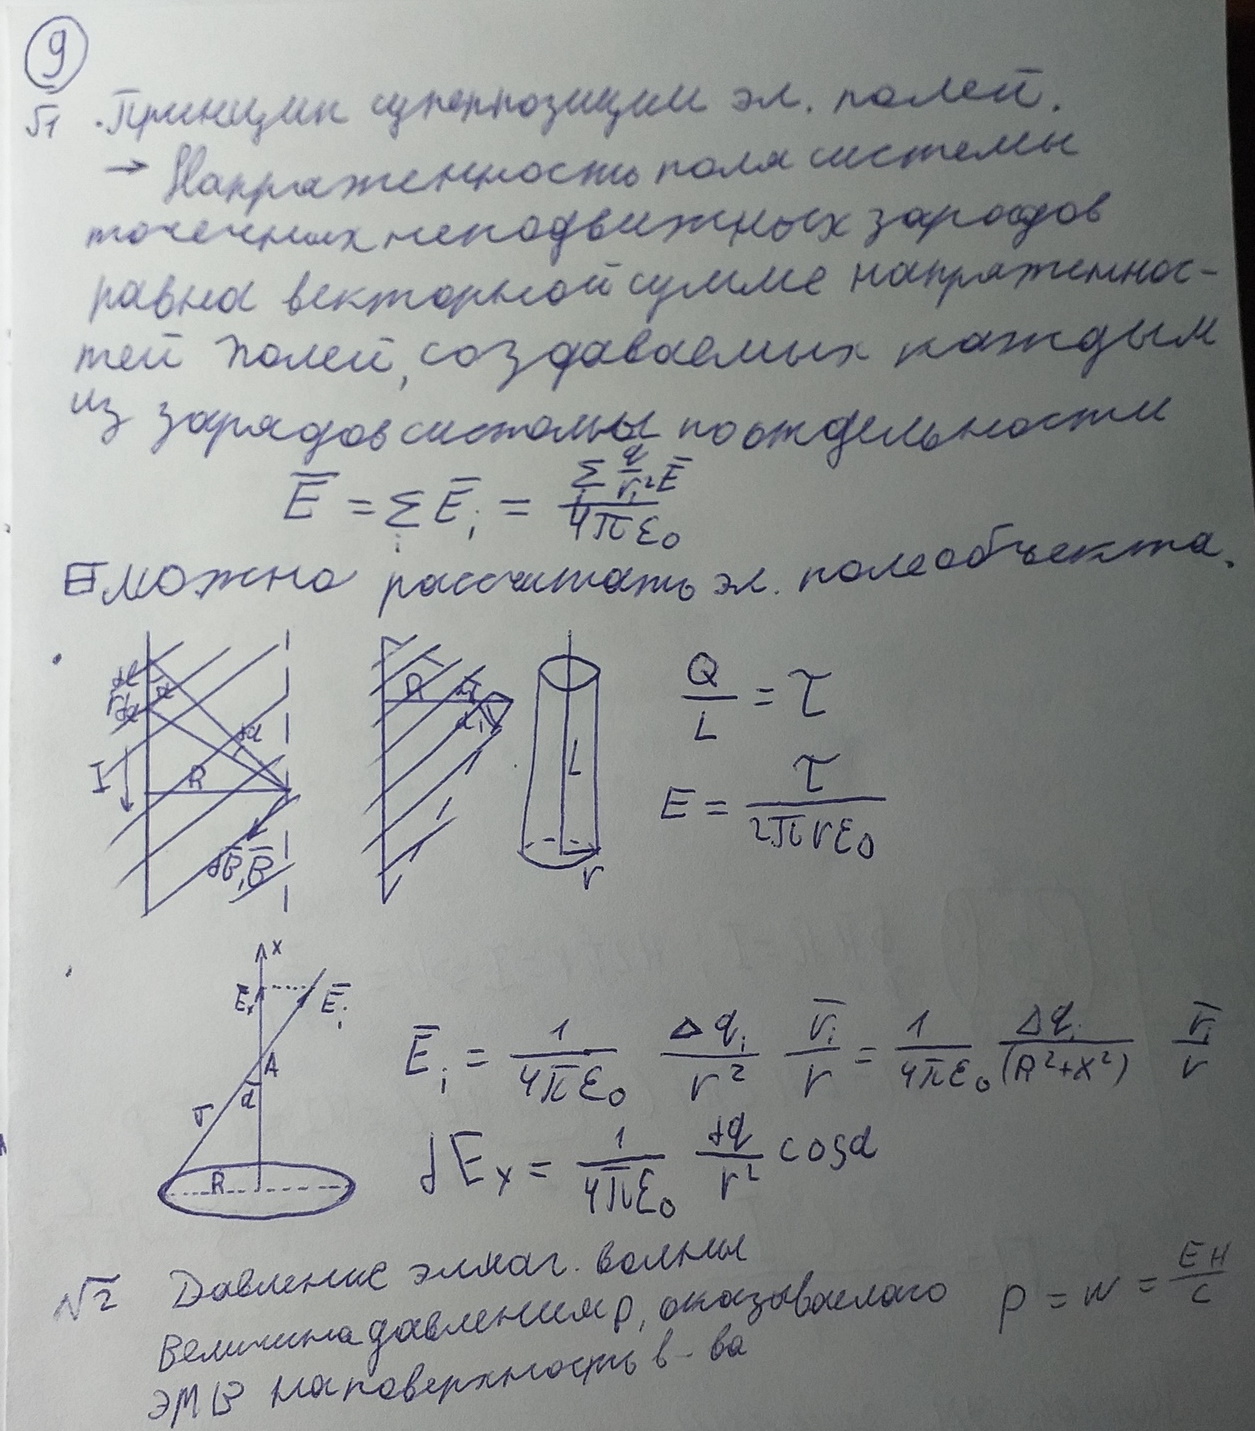 9
√1 . Принцип суперпозиции эл. полей.
→ Напряженность поля системы
точечных неподвижных зарядов
равна векторной сумме напряженнос-
тей полей, создаваемых каждым
из зарядов системы по отдельности
E̅ = Σ_i E̅_i = (Σ_i q/r_i² E̅)/(4πε₀)
можно рассчитать эл. поле объекта.
dl α dα R I dB̅, B̅
R
L r
Q/L = τ
E = τ/(2πrε₀)
x E̅x E̅_i A α R
E̅_i = 1/(4πε₀) Δq_i/r² r̅_i/r = 1/(4πε₀) Δq_i/(R²+x²) r̅_i/r
dEx = 1/(4πε₀) dq/r² cosα
√2 Давление элмаг. волны
Величина давления p, оказываемого
ЭМВ на поверхность в-ва
p = w = EH/c